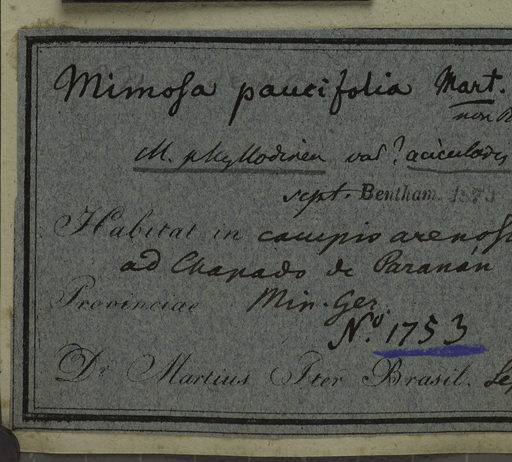 Mimosa paucifolia Mart.
non
M. phyllodinea var? aciculades
sept. Bentham. 1873
Habitat in campis arenos
ad Chapado de Paranán
Provinciae Min. Ger.
No. 1753
Dr Martius Iter Brasil. Sep